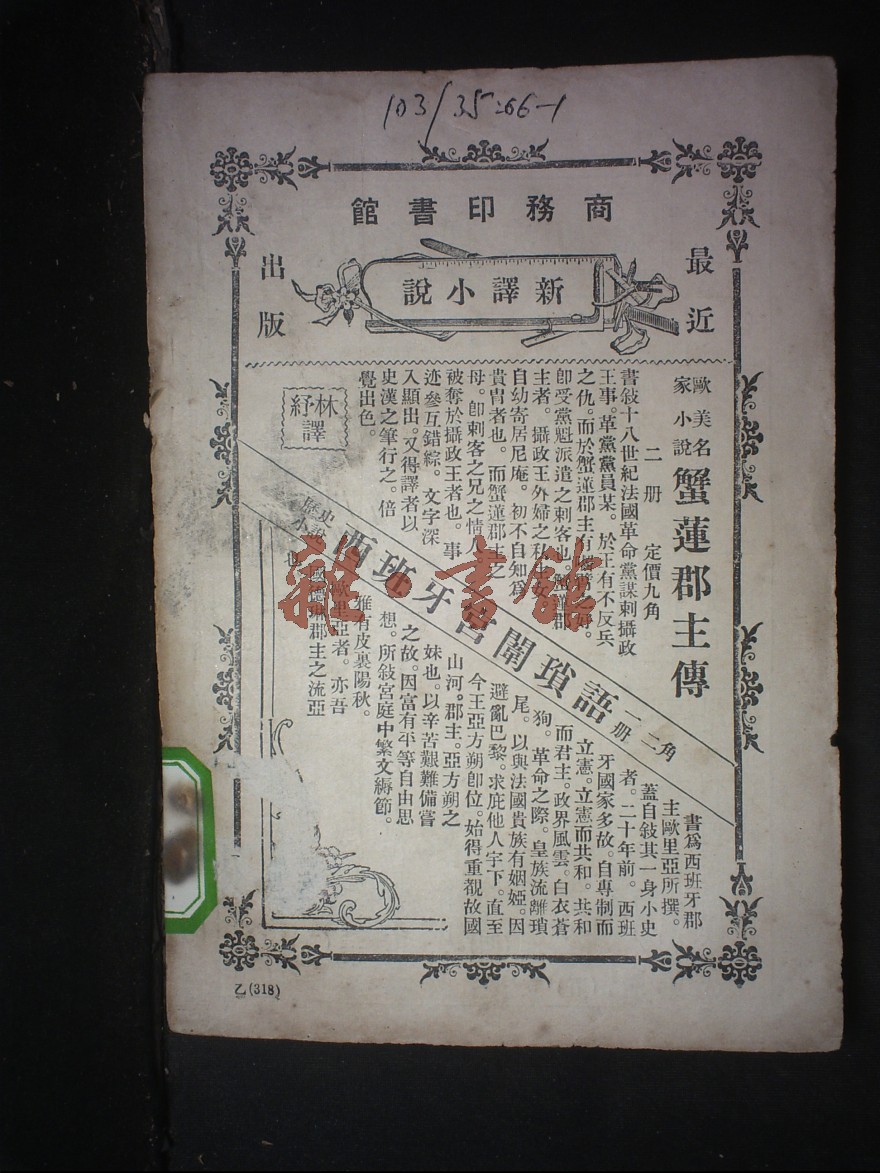 103/35:66-1
商務印書館
最近
新譯小說
出版
歐美名
家小說
蟹蓮郡主傳
二册 定價九角
書敍十八世紀法國革命黨謀刺攝政
王事。革黨黨員某。於王有不反兵
之仇。而於蟹蓮郡主有
卽受黨魁派遣之刺客也。蟹蓮郡
主者。攝政王外婦之私生女。
自幼寄居尼庵。初不自知爲
貴胄者也。而蟹蓮郡主之
母。卽刺客之兄之情人。
被奪於攝政王者也。事
迹參互錯綜。文字深
入顯出。又得譯者以
史漢之筆行之。倍
覺出色。
林紓
譯
歷史
小說
西班牙宮闈瑣語
一册
二角
書爲西班牙郡
主歐里亞所撰。
蓋自敍其一身小史
者。二十年前。西班
牙國家多故。自專制而
立憲。立憲而共和。共和
而君主。政界風雲。白衣蒼
狗。革命之際。皇族流離瑣
尾。以與法國貴族有姻婭。因
避亂巴黎。求庇他人宇下。直至
今王亞方朔卽位。始得重覩故國
山河。郡主。亞方朔之
妹也。以辛苦艱難備嘗
之故。因富有平等自由思
想。所敍宮庭中繁文縟節。
雅有皮裏陽秋。
歐里亞者。亦吾
國德琳郡主之流亞
也
雜·書館
乙(318)